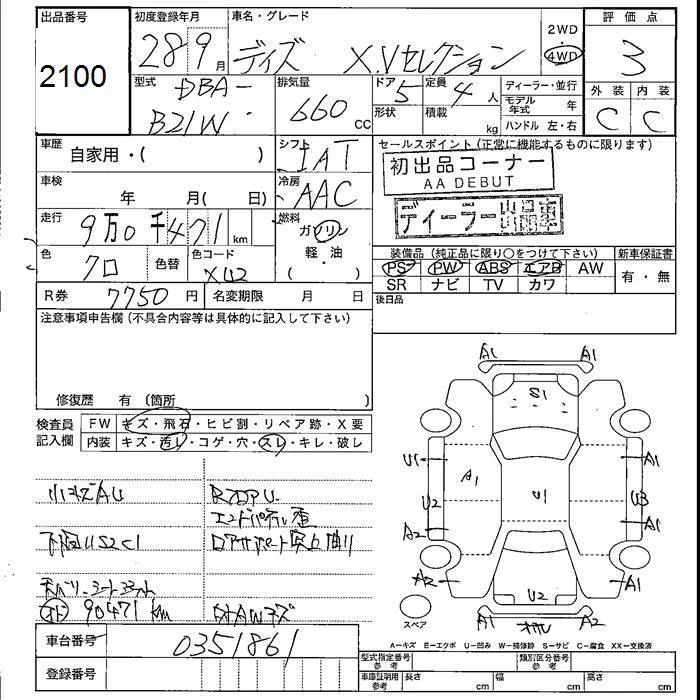 出品番号
2100
初度登録年月
28 9月
車名・グレード
デイズ X.Vセレクション
2WD
4WD
評価点
3
外装 内装
C C
型式
DBA-
B21W
排気量
660 CC
ドア 5
形状
定員 4人
積載 kg
ディーラー・並行
モデル年式 年
ハンドル 左・右
車歴
自家用・( )
シフト
IAT
車検
年 月( 日)
冷房
AAC
走行
9万0千471 km
燃料
ガソリン
軽・油
・( )
色
クロ
色替
色コード
X42
R券 7750円
名変期限 月 日
セールスポイント (正常に機能するものに限ります)
初出品コーナー
AA DEBUT
ディーラー出品車
装備品 (純正品に限り○をつけて下さい)
新車保証書
PS PW ABS エアB AW
SR ナビ TV カワ
有・無
後日品
注意事項申告欄 (不具合内容等は具体的に記入して下さい)
修復歴 有 (箇所
検査員
記入欄
FW キズ・飛石・ヒビ割・リペア跡・X要
内装 キズ・汚レ・コゲ・穴・スレ・キレ・破レ
小キズAU
RフロアU
エンドパネル歪
下回US2C1
ロアサポート突上曲り
90471km
AWキズ
車台番号
0351861
登録番号
A1 A1
S1
U1 A1 A1
U2 U1 U3
A2 A1
A2 A1
U2
A1 A2
スペア
A-キズ E-エクボ U-凹み W-補修跡 S-サビ C-腐食 XX-交換済
型式指定番号
参考
類別区分番号
参考
車庫証明用
参考
長さ cm
幅 cm
高さ cm